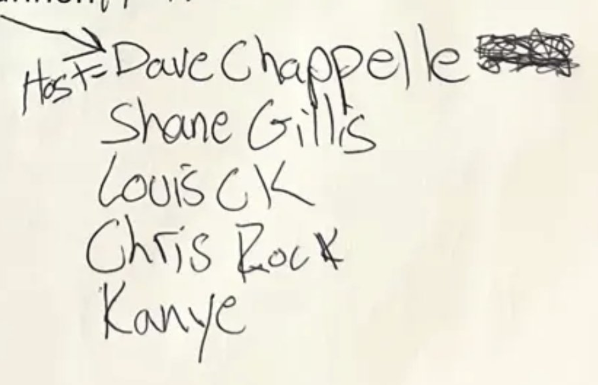 Host= Dave Chappelle
Shane Gillis
Louis CK
Chris Rock
Kanye